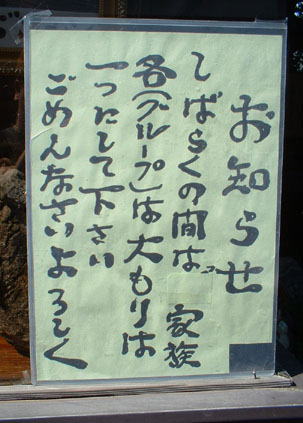 お知らせ
しばらくの間は゛家族
各(グループ)は大もりは
一つにして下さい
ごめんなさいよろしく